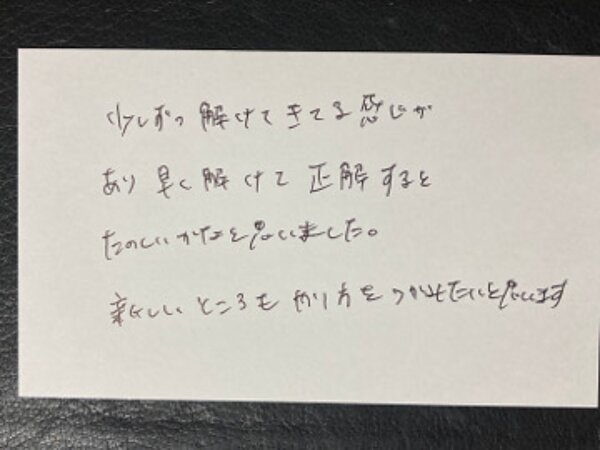 少しずつ解けてきてる感じが
あり早く解けて正解すると
たのしいかなと思いました。
新しいところもやり方をつかみたいと思います